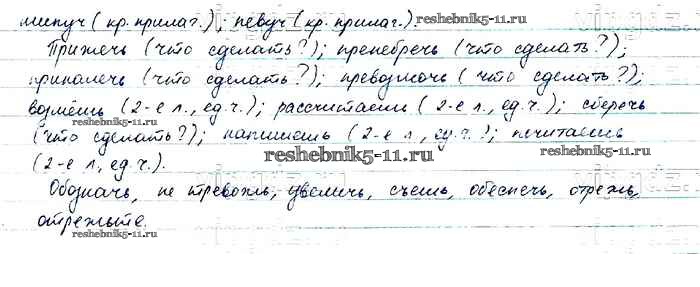 липуч (кр. прилаг.); певуч (кр. прилаг.).
reshebnik5-11.ru
Прижечь (что сделать?); пренебречь (что сделать?);
приналечь (что сделать?); превозмочь (что сделать?);
возмёшь (2-е л., ед.ч.); рассчитаешь (2-е л., ед.ч.); сберечь
reshebnik5-11.ru
(что сделать?); напишешь (2-е л., ед.ч.); почитаешь
reshebnik5-11.ru
reshebnik5-11.ru
(2-е л., ед.ч.).
Обозначь, не тревожь, увеличь, съешь, обеспечь, отрежь,
отрежьте.
reshebnik5-11.ru